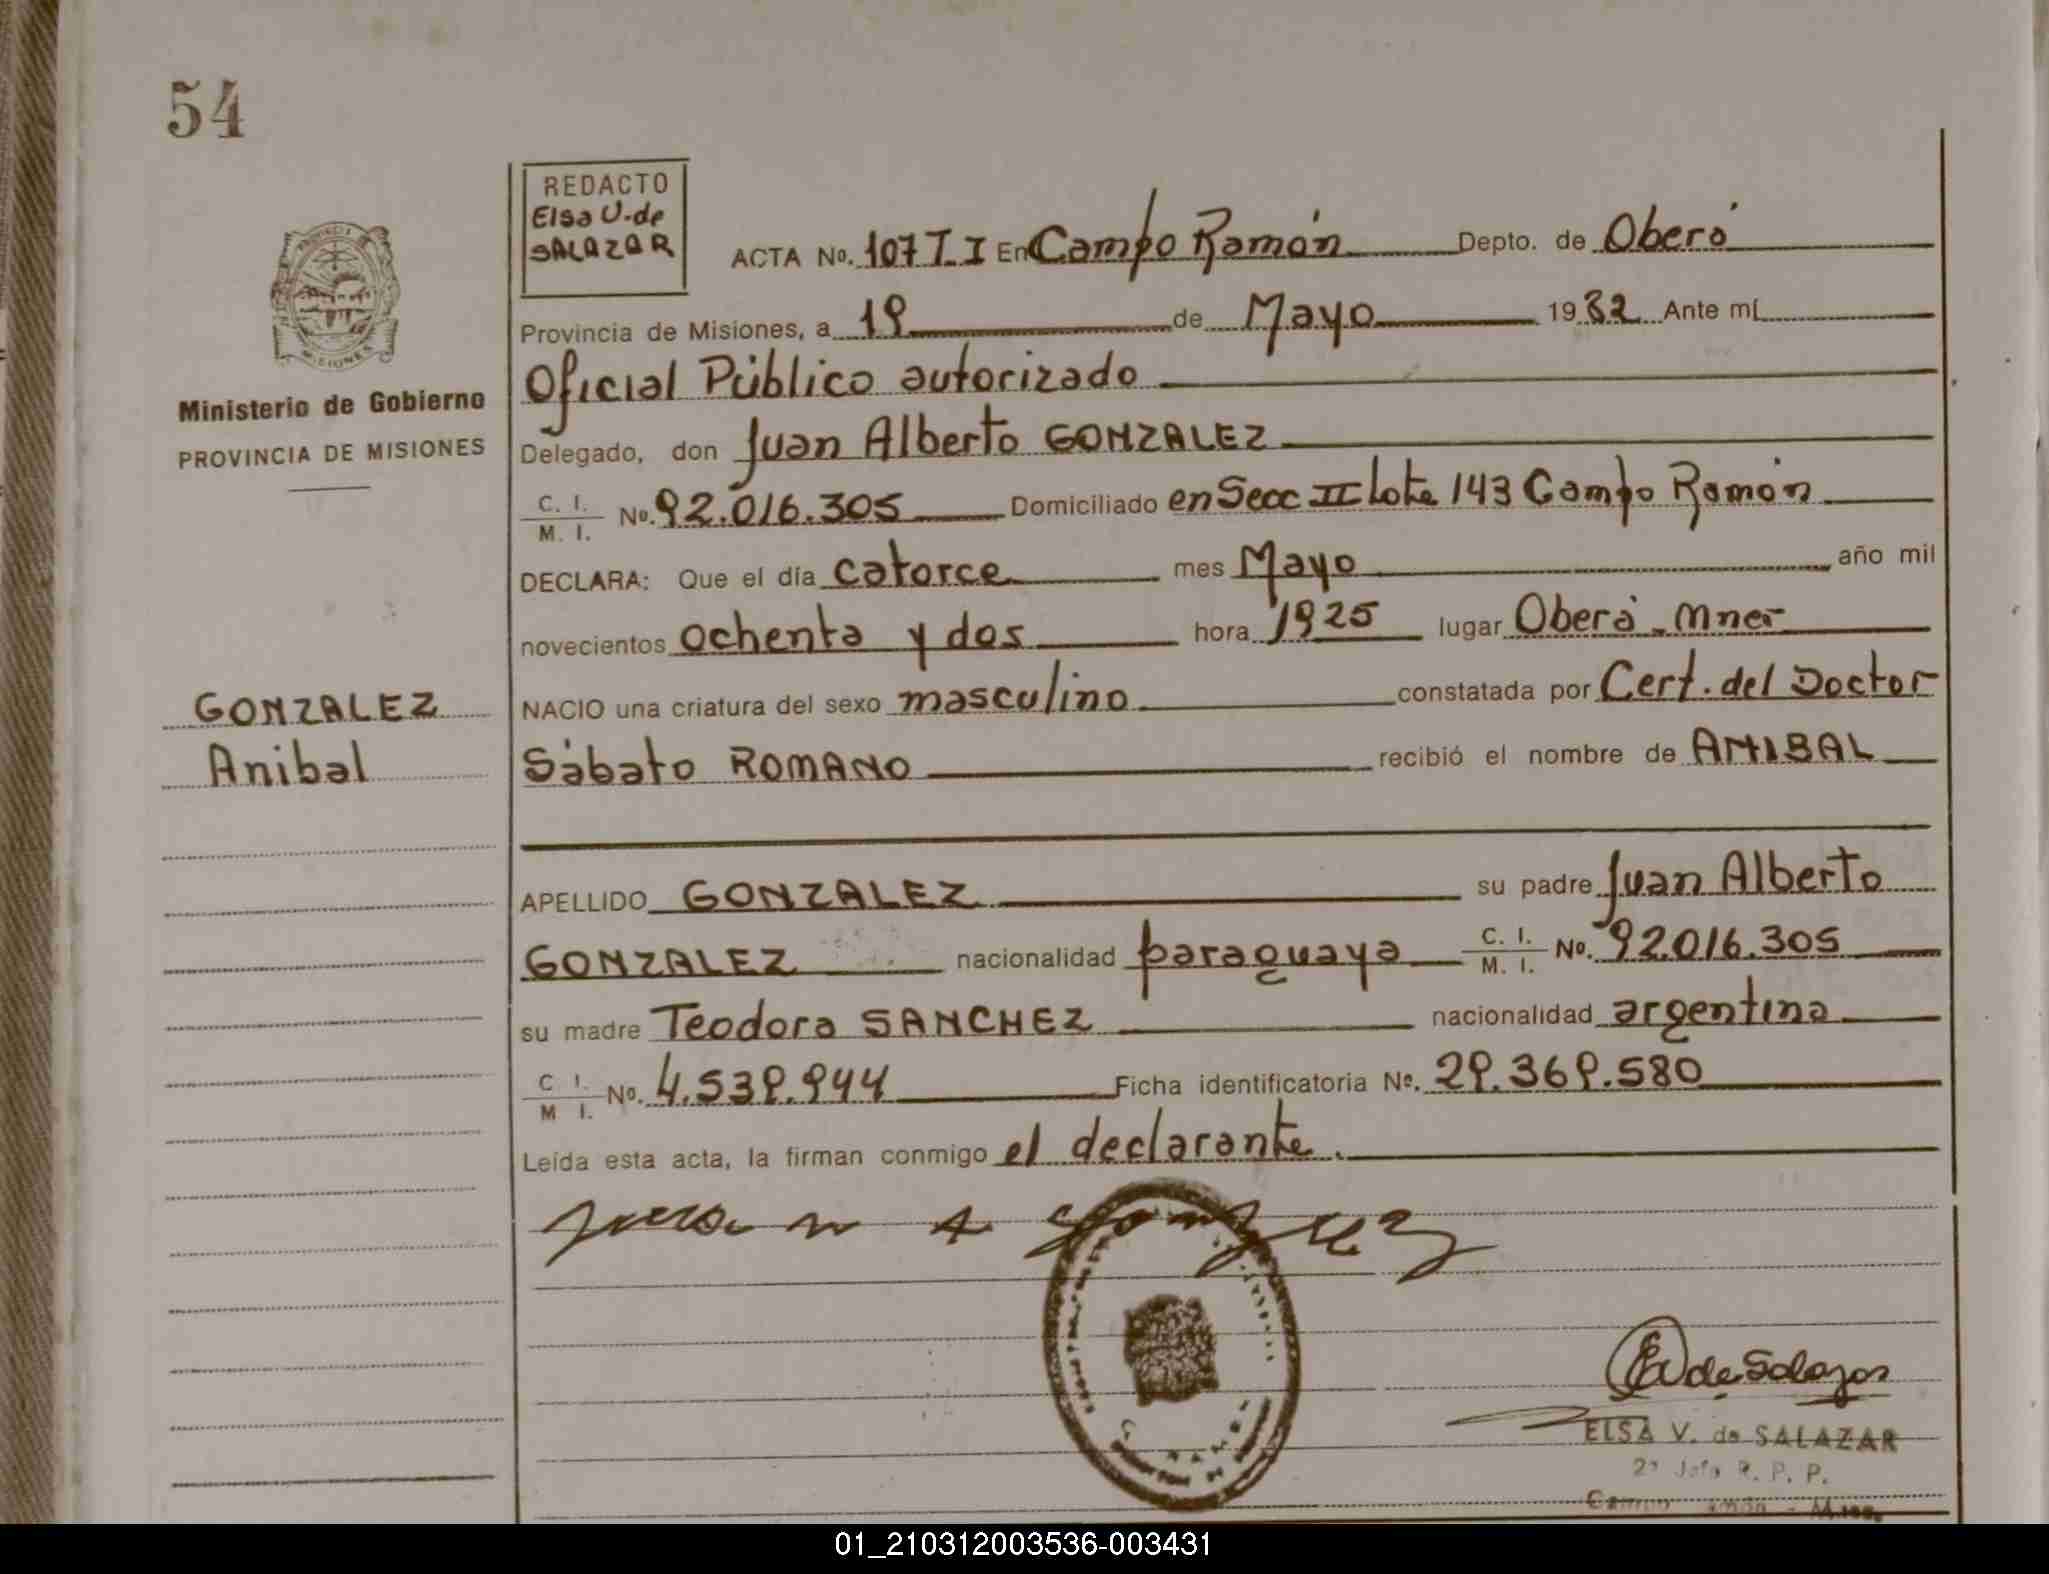 54
PROVINCIA DE
MISIONES
Ministerio de Gobierno
PROVINCIA DE MISIONES
GONZALEZ
Anibal
REDACTO
Elsa V. de
SALAZAR
ACTA No. 107 T. I En Campo Ramón Depto. de Oberá
Provincia de Misiones, a 19 de Mayo 1982 Ante mí
Oficial Público autorizado
Delegado, don Juan Alberto GONZALEZ
C. I.
M. I. No. 92.016.305 Domiciliado en Secc II Lote 143 Campo Ramón
DECLARA: Que el día catorce mes Mayo año mil
novecientos ochenta y dos hora 1925 lugar Oberá - Mnes
NACIO una criatura del sexo masculino constatada por Cert. del Doctor
Sábato ROMANO recibió el nombre de ANIBAL
APELLIDO GONZALEZ su padre Juan Alberto
GONZALEZ nacionalidad paraguaya C. I. M. I. No. 92.016.305
su madre Teodora SANCHEZ nacionalidad argentina
C I. M I. No. 4.539.944 Ficha identificatoria No. 29.369.580
Leída esta acta, la firman conmigo el declarante.
Juan A Gonzalez
EV de Salazar
ELSA V. de SALAZAR
2ª Jefa R. P. P.
Campo Ramón - Mnes.
01_210312003536-003431